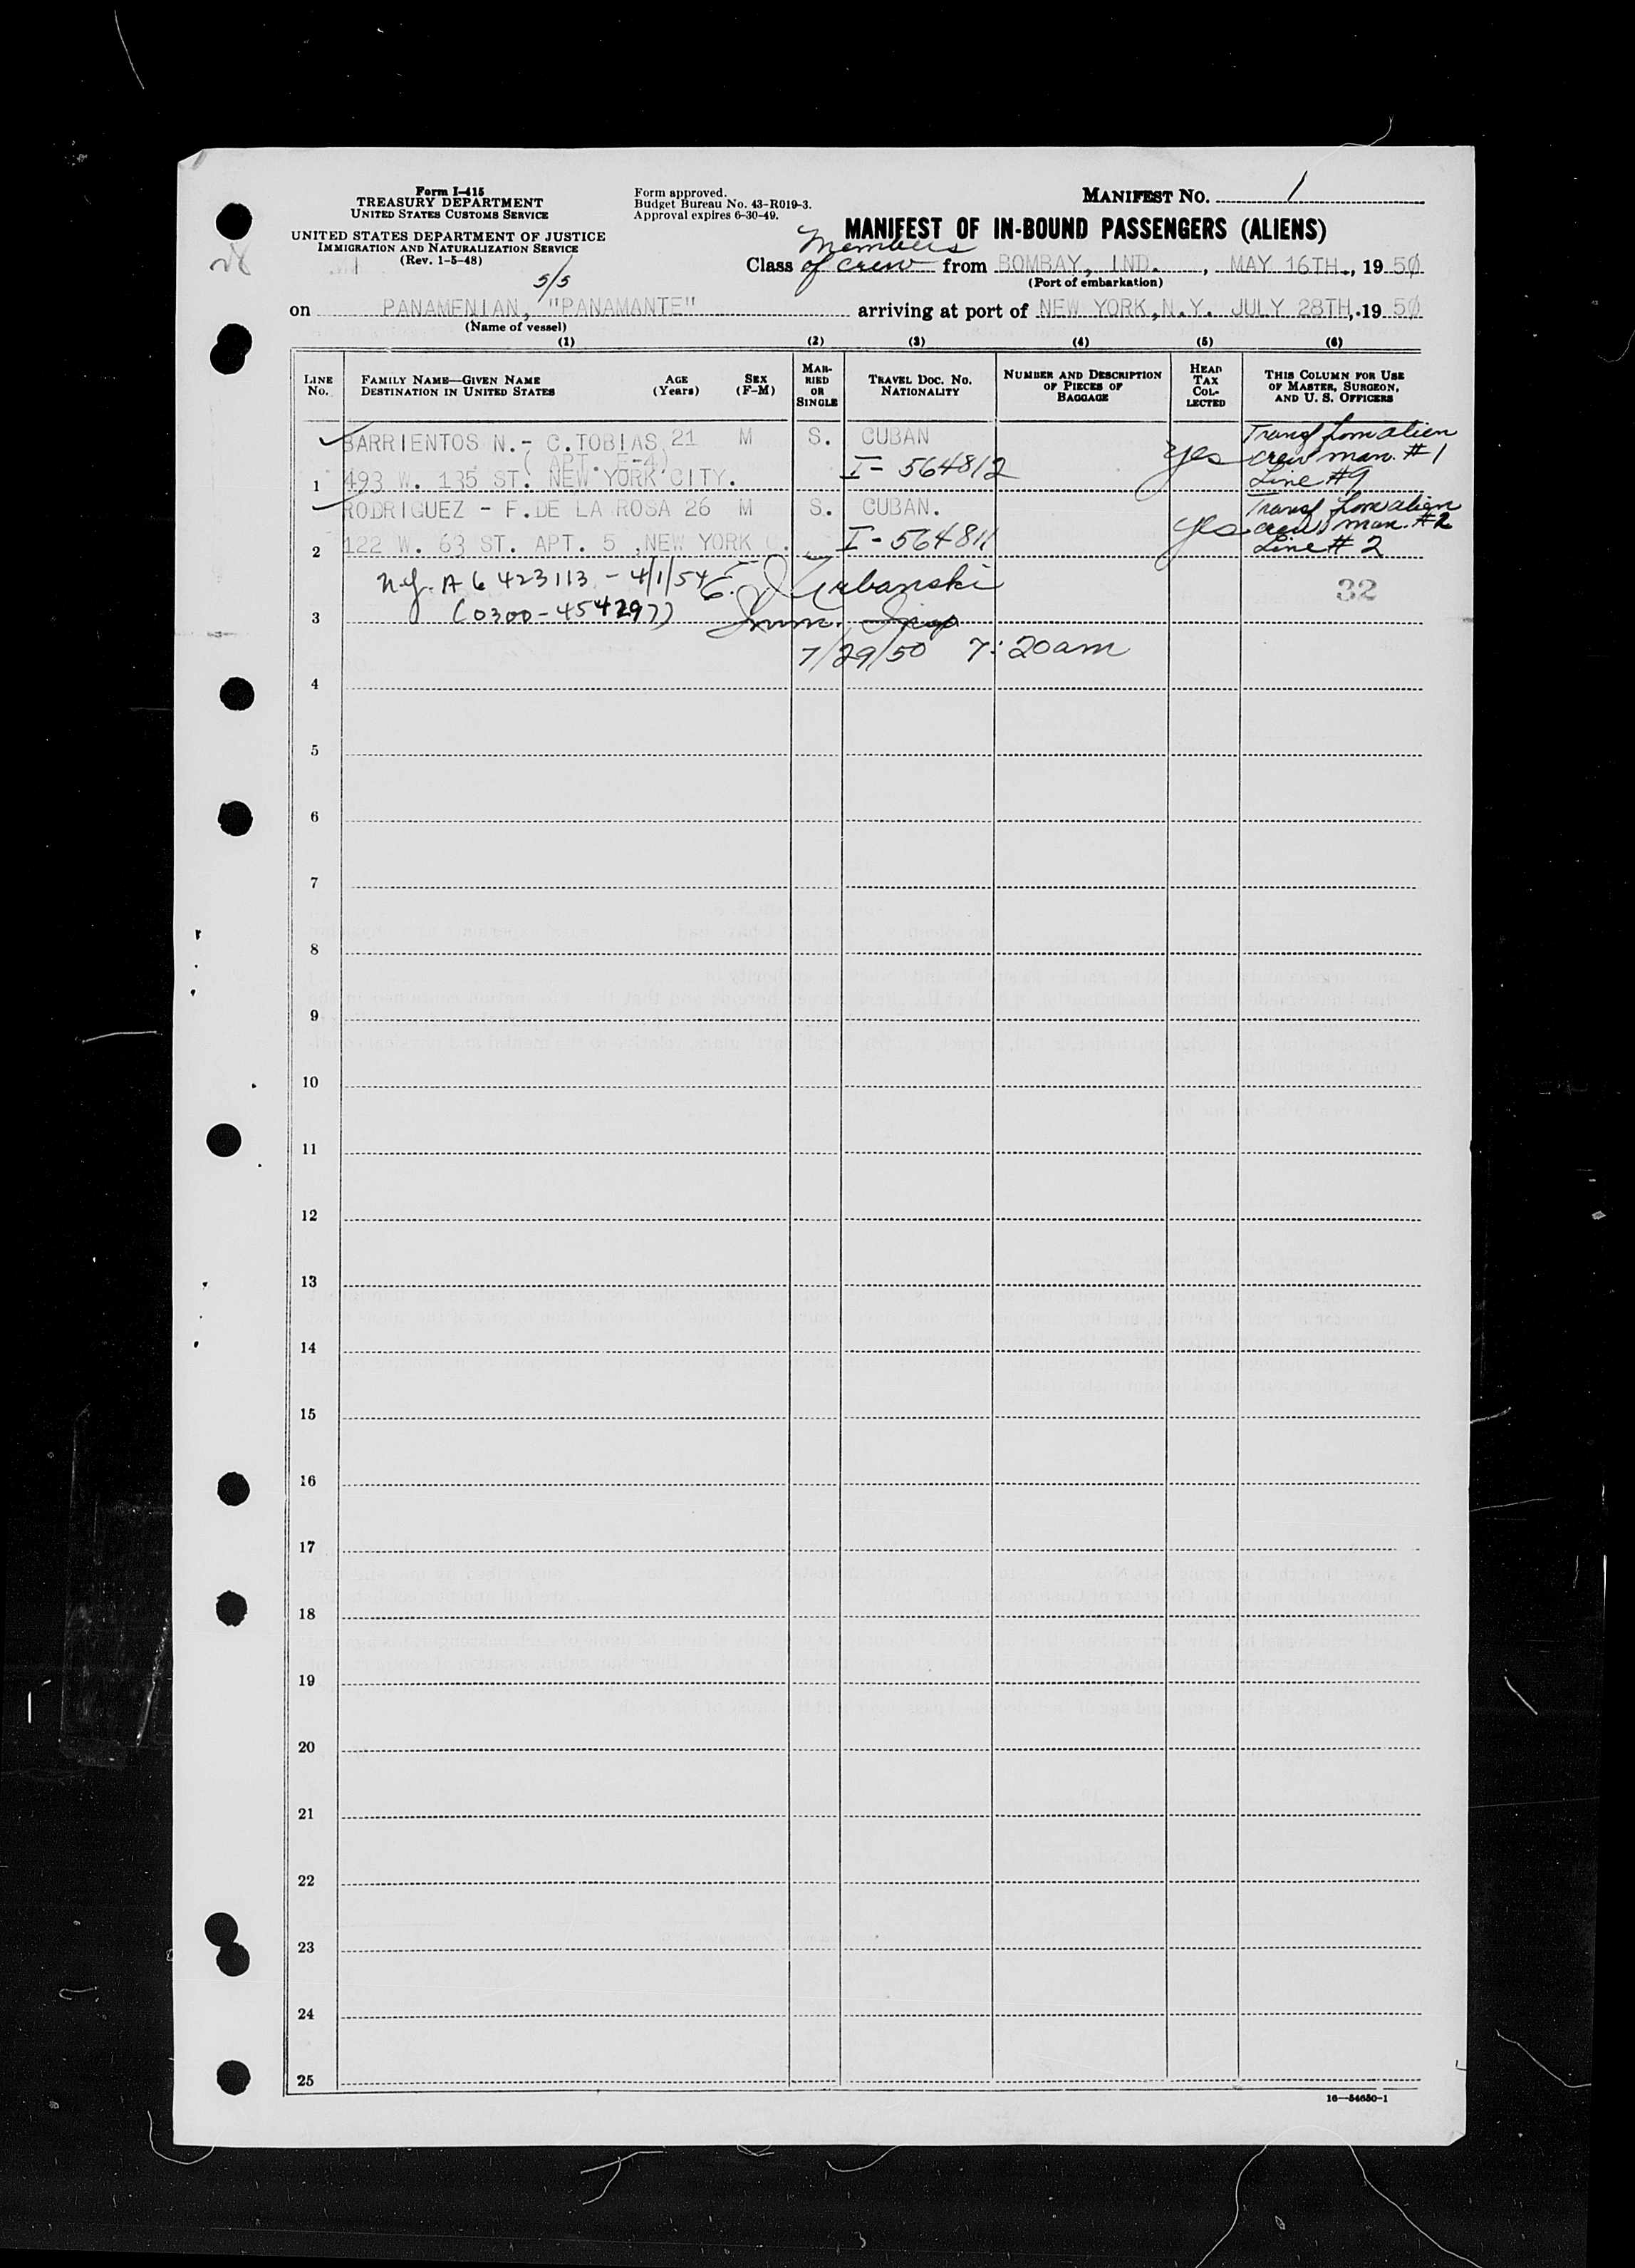 Form I-415
TREASURY DEPARTMENT
UNITED STATES CUSTOMS SERVICE
UNITED STATES DEPARTMENT OF JUSTICE
IMMIGRATION AND NATURALIZATION SERVICE
(Rev. 1-5-48)
Form approved.
Budget Bureau No. 43-R019-3.
Approval expires 6-30-49.
MANIFEST NO. 1
MANIFEST OF IN-BOUND PASSENGERS (ALIENS)
Members
Class of crew from BOMBAY, IND., MAY 16TH., 1950
(Port of embarkation)
S/S
on PANAMENIAN, "PANAMANTE" arriving at port of NEW YORK, N.Y. JULY 28TH, 1950
(Name of vessel)
(1) (2) (3) (4) (5) (6)
LINE No. FAMILY NAME—GIVEN NAME DESTINATION IN UNITED STATES AGE (Years) SEX (F-M) MARRIED OR SINGLE TRAVEL DOC. NO. NATIONALITY NUMBER AND DESCRIPTION OF PIECES OF BAGGAGE HEAD TAX COLLECTED THIS COLUMN FOR USE OF MASTER, SURGEON, AND U. S. OFFICERS
BARRIENTOS N.- C.TOBIAS 21 M S. CUBAN Transf from alien
( APT. E-4) I-564812 Yes crew man. #1
1 493 W. 135 ST. NEW YORK CITY. Line #9
RODRIGUEZ - F.DE LA ROSA 26 M S. CUBAN. Transf from alien
Yes crew man. #2
2 122 W. 63 ST. APT. 5 ,NEW YORK C. I-564811 Line #2
N.Y. A6 423113 - 4/1/54 E. J. Urbanski 32
(0300-454297)
3 Imm. Insp.
7/29/50 7:20am
4
5
6
7
8
9
10
11
12
13
14
15
16
17
18
19
20
21
22
23
24
25
16—54650-1